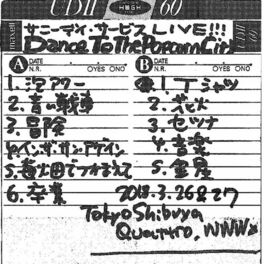 UDII HIGH 60
maxell
サニーデイ・サービス LIVE!!!
Dance To The Popcorn City
A DATE N.R. OYES ONO
B DATE N.R. OYES ONO
1. 泡アワー
2. 青い戦車
3. 冒険
4. イン・ザ・サン・アゲイン
5. 苺畑でつかまえて
6. 卒業
1. Tシャツ
2. 花火
3. セツナ
4. 音楽
5. 金星
2018.3.26&27
Tokyo Shibuya
Quattro, WWWX